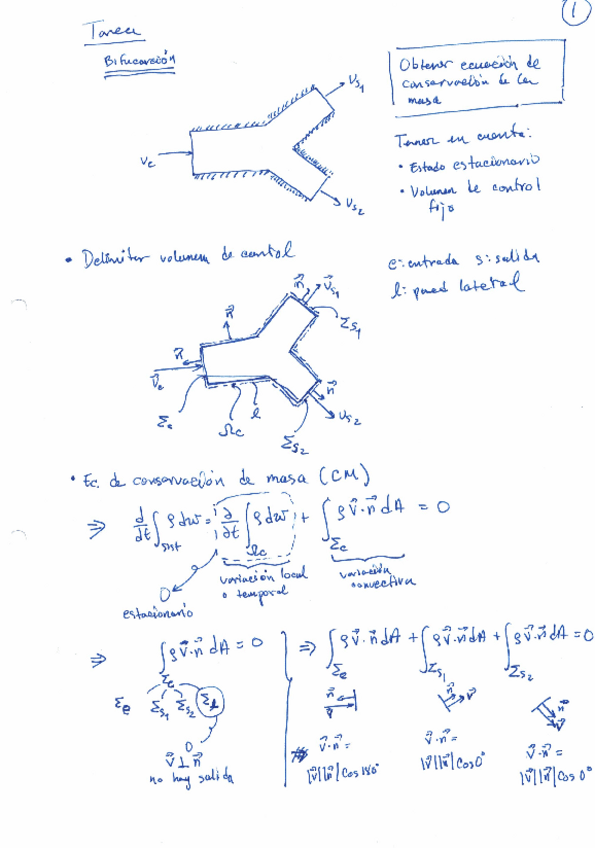 1
Tarea
Bifurcación
Obtener ecuación de
conservación de la
masa
Vs1
Ve
Vs2
Tener en cuenta:
• Estado estacionario
• Volumen de control
fijo
• Delimitar volumen de control
e: entrada s: salida
l: pared lateral
n⃗ n⃗ V⃗s1
Σs1
n⃗
V⃗e
n⃗
Σe Ωc l Σs2 Vs2
• Ec. de conservación de masa (CM)
⇒ d/dt ∫sist ρ dw = ∂/∂t ∫Ωc ρ dw + ∫Σc ρ v⃗·n⃗ dA = 0
0
estacionario
variación local
o temporal
variación
convectiva
⇒ ∫Σc ρ v⃗·n⃗ dA = 0 ⇒ ∫Σe ρ v⃗·n⃗ dA + ∫Σs1 ρ v⃗·n⃗ dA + ∫Σs2 ρ v⃗·n⃗ dA = 0
Σe Σs1 Σs2 Σl
0
v⃗ ⊥ n⃗
no hay salida
n⃗ v⃗
v⃗·n⃗ =
|v⃗||n⃗| cos 180°
n⃗ v⃗
v⃗·n⃗ =
|v⃗||n⃗| cos 0°
n⃗
v⃗
v⃗·n⃗ =
|v⃗||n⃗| cos 0°